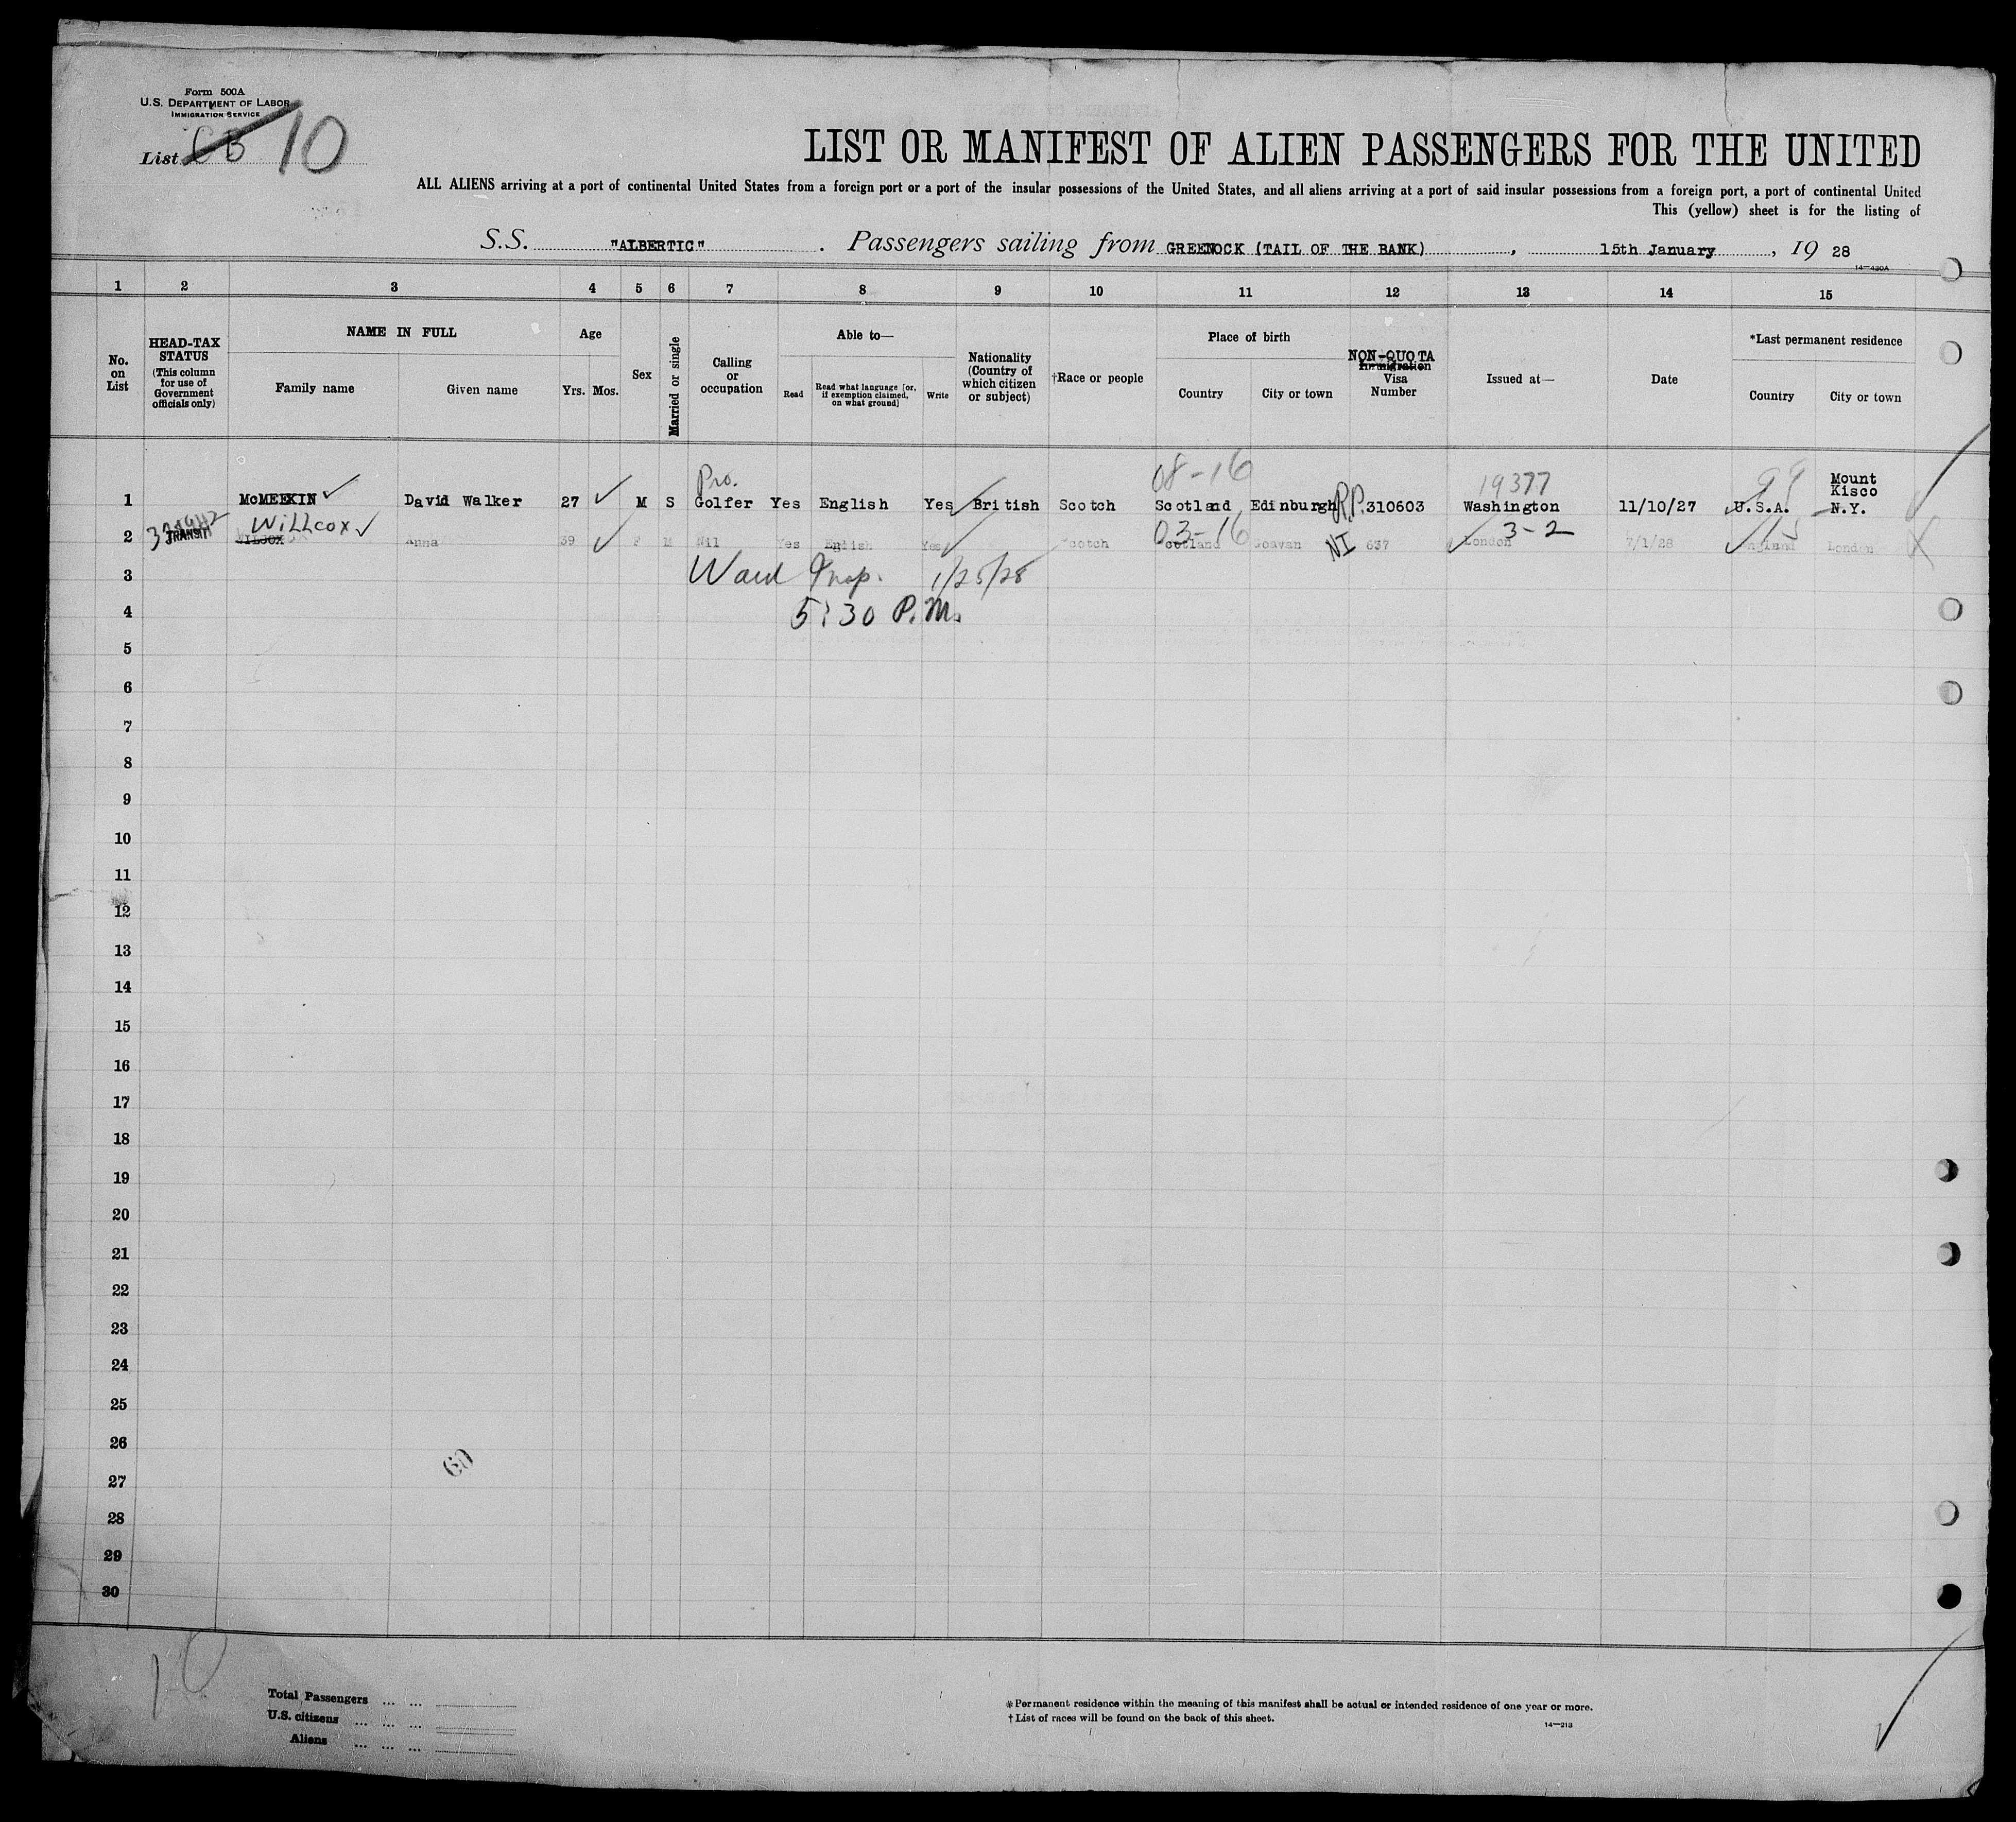 Form 500A
U.S. DEPARTMENT OF LABOR
IMMIGRATION SERVICE
List CB 10
LIST OR MANIFEST OF ALIEN PASSENGERS FOR THE UNITED
ALL ALIENS arriving at a port of continental United States from a foreign port or a port of the insular possessions of the United States, and all aliens arriving at a port of said insular possessions from a foreign port, a port of continental United
This (yellow) sheet is for the listing of
S.S. "ALBERTIC". Passengers sailing from GREENOCK (TAIL OF THE BANK), 15th January, 19 28
14—430A
1 2 3 4 5 6 7 8 9 10 11 12 13 14 15
No. on List
HEAD-TAX STATUS (This column for use of Government officials only)
NAME IN FULL
Family name Given name
Age
Yrs. Mos.
Sex
Married or single
Calling or occupation
Able to—
Read Read what language [or, if exemption claimed, on what ground] Write
Nationality (Country of which citizen or subject)
†Race or people
Place of birth
Country City or town
NON-QUOTA Immigration Visa Number
Issued at—
Date
*Last permanent residence
Country City or town
Pro. 08-16 19377 99 Mount Kisco
1 McMEEKIN David Walker 27 M S Golfer Yes English Yes British Scotch Scotland Edinburgh R.P. 310603 Washington 11/10/27 U.S.A. N.Y.
Willcox 03-16 3-2 15
2 TRANSIT WILCOX Anna 39 F M Nil Yes English Yes Scotch Scotland NI 637 London 7/1/28 England London
3 Ward 1/25/28
4 5:30 P.M.
5
6
7
8
9
10
11
12
13
14
15
16
17
18
19
20
21
22
23
24
25
26
60
27
28
29
30
10
Total Passengers ... ...
U.S. citizens ... ... ...
Aliens ... ... ...
*Permanent residence within the meaning of this manifest shall be actual or intended residence of one year or more.
†List of races will be found on the back of this sheet.
14—213